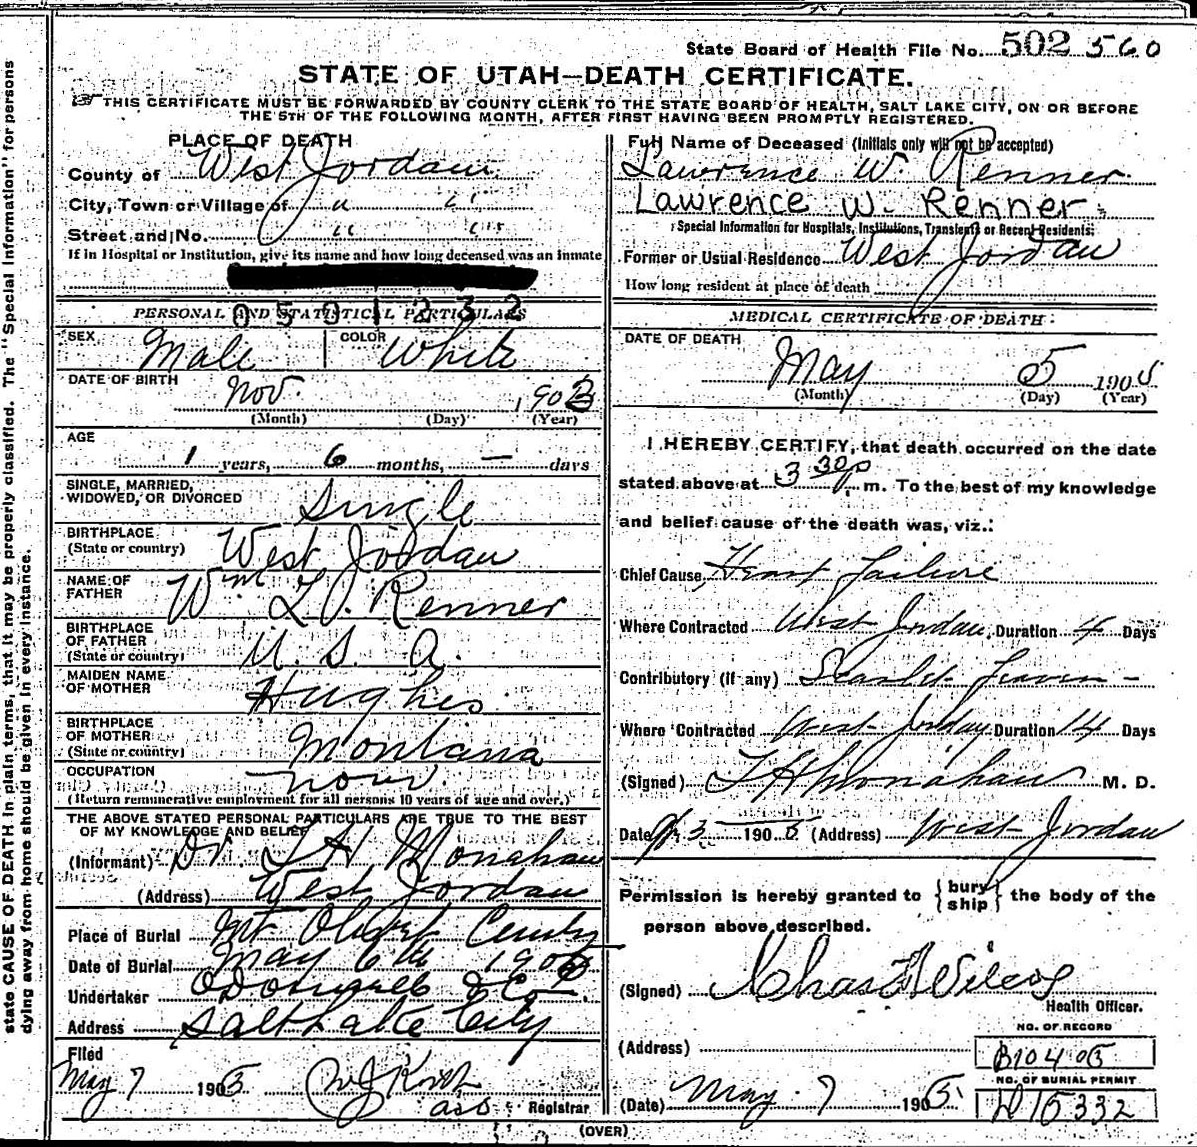 State Board of Health File No. 502 560
STATE OF UTAH—DEATH CERTIFICATE.
THIS CERTIFICATE MUST BE FORWARDED BY COUNTY CLERK TO THE STATE BOARD OF HEALTH, SALT LAKE CITY, ON OR BEFORE
THE 5TH OF THE FOLLOWING MONTH, AFTER FIRST HAVING BEEN PROMPTLY REGISTERED.
state CAUSE OF DEATH in plain terms, that it may be properly classified. The "Special Information" for persons
dying away from home should be given in every instance.
PLACE OF DEATH
County of West Jordan
City, Town or Village of " "
Street and No. " "
If in Hospital or Institution, give its name and how long deceased was an inmate
0501232
PERSONAL AND STATISTICAL PARTICULARS
SEX Male COLOR White
DATE OF BIRTH Nov. 1903
(Month) (Day) (Year)
AGE
1 years, 6 months, — days
SINGLE, MARRIED,
WIDOWED, OR DIVORCED Single
BIRTHPLACE
(State or country) West Jordan
NAME OF
FATHER Wm L. V. Renner
BIRTHPLACE
OF FATHER
(State or country) U. S. A.
MAIDEN NAME
OF MOTHER Hughes
BIRTHPLACE
OF MOTHER
(State or country) Montana
OCCUPATION
(Return remunerative employment for all persons 10 years of age and over.)
THE ABOVE STATED PERSONAL PARTICULARS ARE TRUE TO THE BEST
OF MY KNOWLEDGE AND BELIEF
(Informant) Dr Monahan
(Address) West Jordan
Place of Burial Mt Olivet
Date of Burial May 6th 1905
Undertaker ODonnell & Co.
Address Salt Lake City
Filed
May 7 1905
Registrar
Full Name of Deceased (Initials only will not be accepted)
Lawrence W. Renner
Lawrence W. Renner
Special Information for Hospitals, Institutions, Transients or Recent Residents:
Former or Usual Residence West Jordan
How long resident at place of death
MEDICAL CERTIFICATE OF DEATH
DATE OF DEATH
May 5 1905
(Month) (Day) (Year)
I HEREBY CERTIFY, that death occurred on the date
stated above at 3 30 p. m. To the best of my knowledge
and belief cause of the death was, viz.:
Chief Cause, Heart Failure
Where Contracted West Jordan, Duration 4 Days
Contributory (if any) Scarlet Fever -
Where Contracted West Jordan Duration 14 Days
(Signed) Monahan M. D.
Date 1905 (Address) West Jordan
Permission is hereby granted to {bury ship} the body of the
person above described.
(Signed) Chas Wilcox
Health Officer.
(Address)
NO. OF RECORD
B10405
NO. OF BURIAL PERMIT
D15332
(Date) May 7 1905.
(OVER)